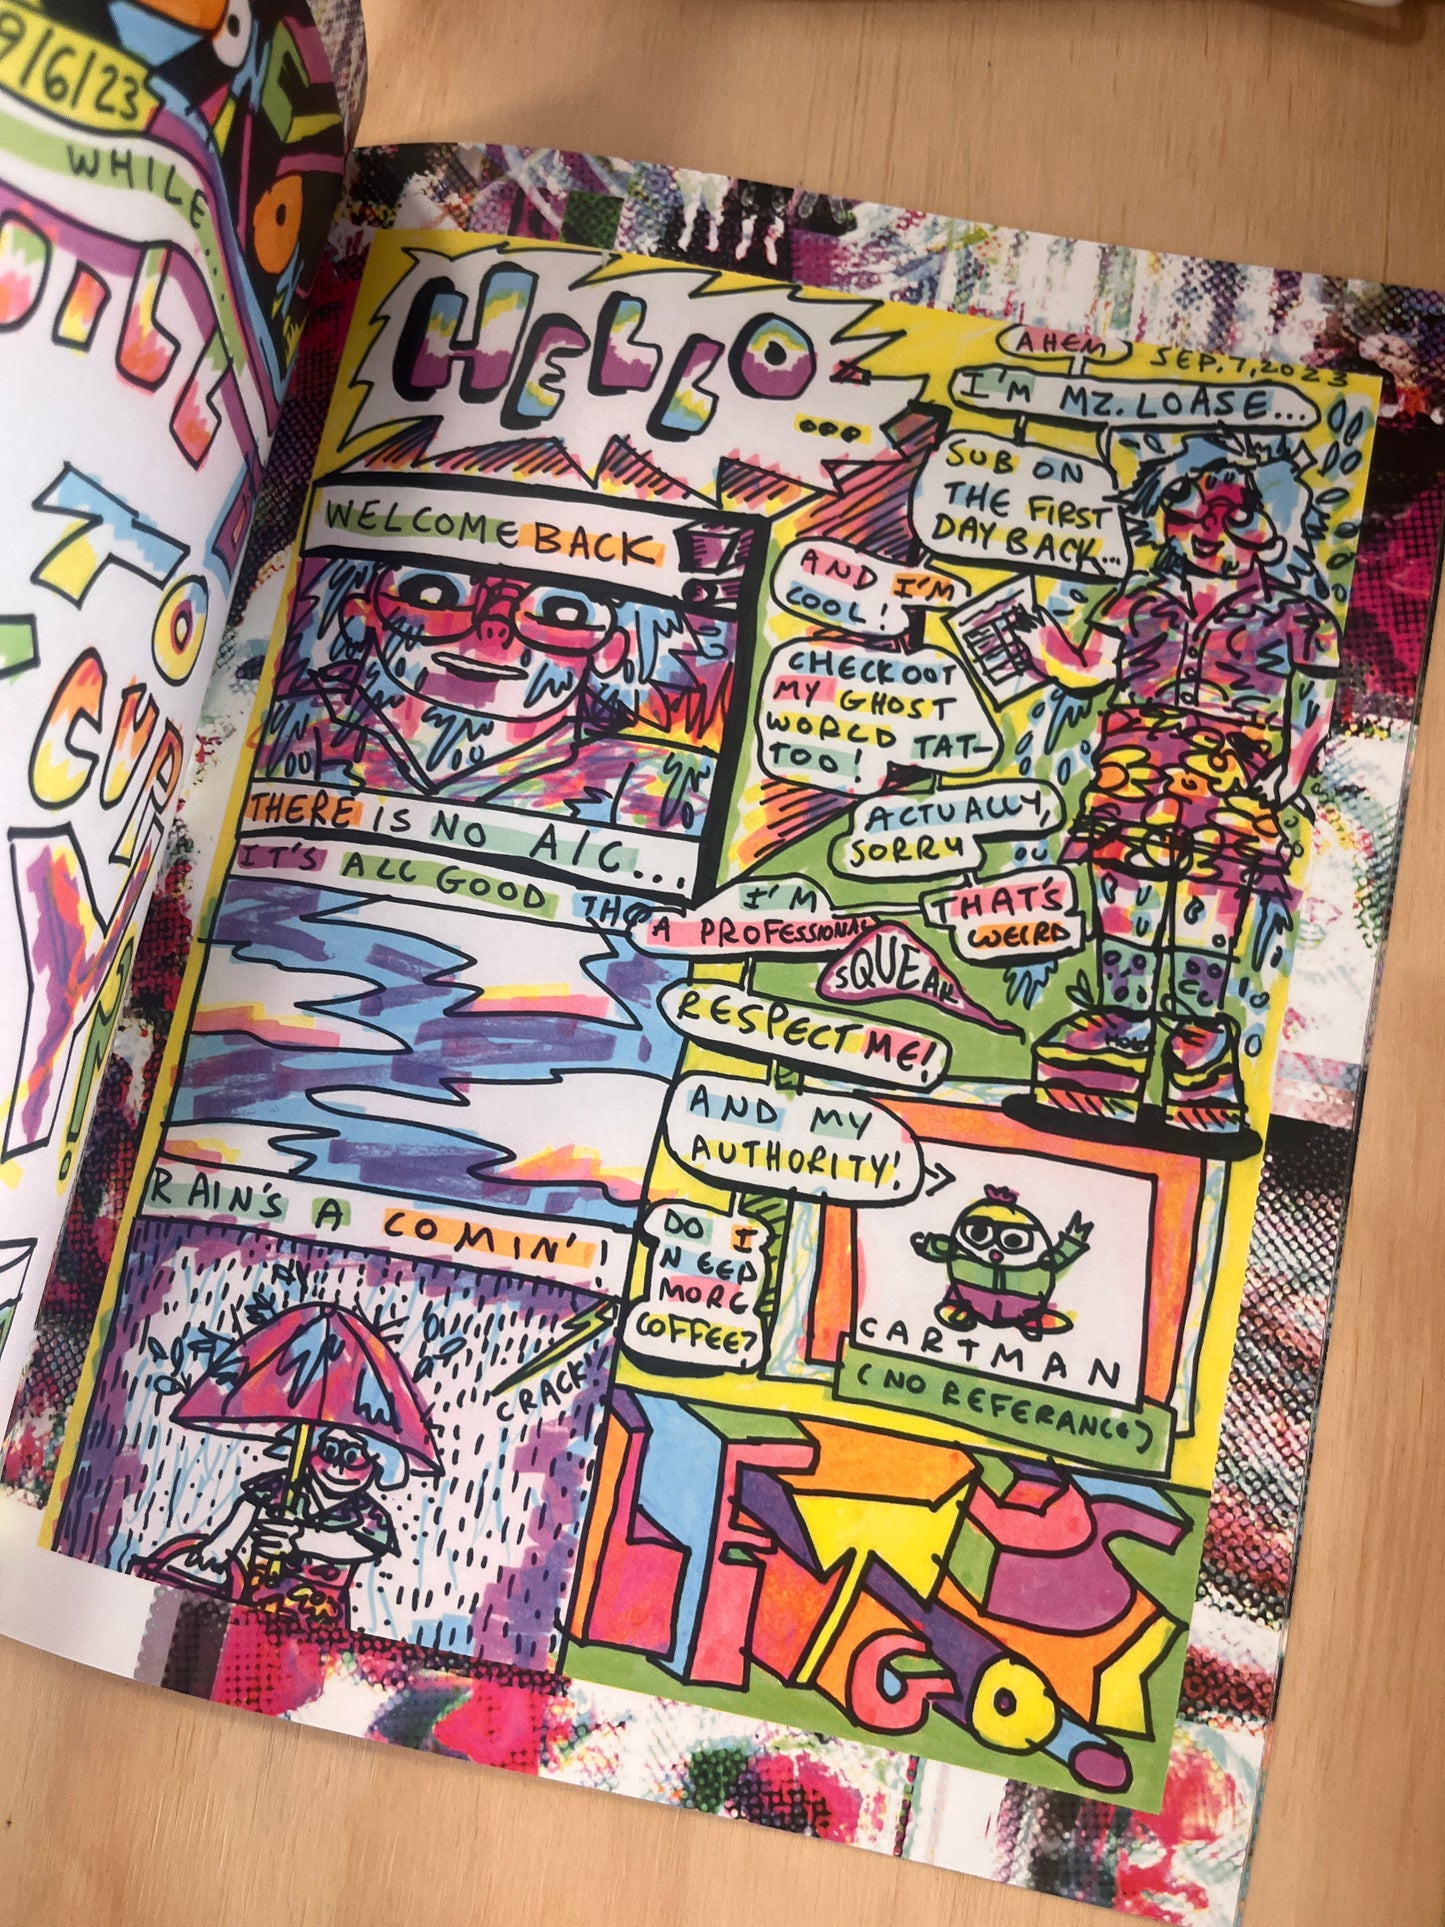 9/6/23
WHILE...
TO
CUP
HELLO...
AHEM
SEP. 7, 2023
I'M MZ. LOASE...
SUB ON
THE FIRST
DAY BACK...
WELCOME BACK
AND I'M
COOL!
CHECK OUT
MY GHOST
WORLD TAT-
TOO!
ACTUALLY,
SORRY
THAT'S
WEIRD
THERE IS NO A/C...
IT'S ALL GOOD THO
I'M
A PROFESSIONAL
SQUEAK
RESPECT ME!
AND MY
AUTHORITY!
DO I
NEED
MORE
COFFEE?
CARTMAN
(NO REFERANCE)
RAIN'S A COMIN'!
CRACK!
LET'S
GO!